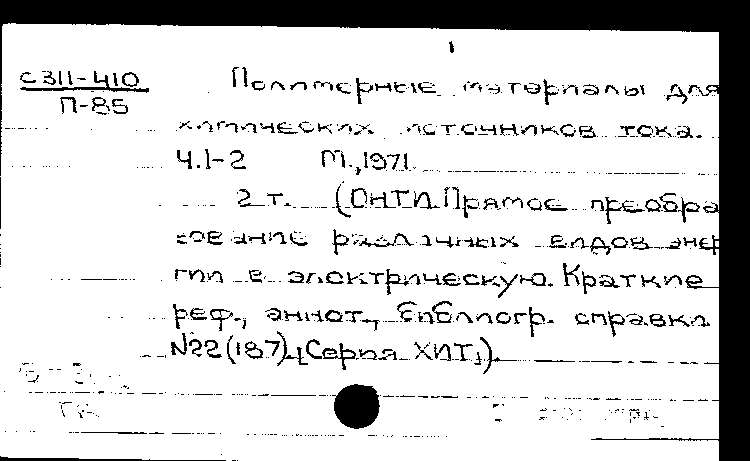 с311-410
П-85
Полимерные материалы для
химических источников тока.
Ч.1-2 М.,1971.
2 т. (ОНТИ. Прямое преобра
зование различных видов энер
гии в электрическую. Краткие
реф., аннот., библиогр. справки
№22(187).[Серия ХИТ]).